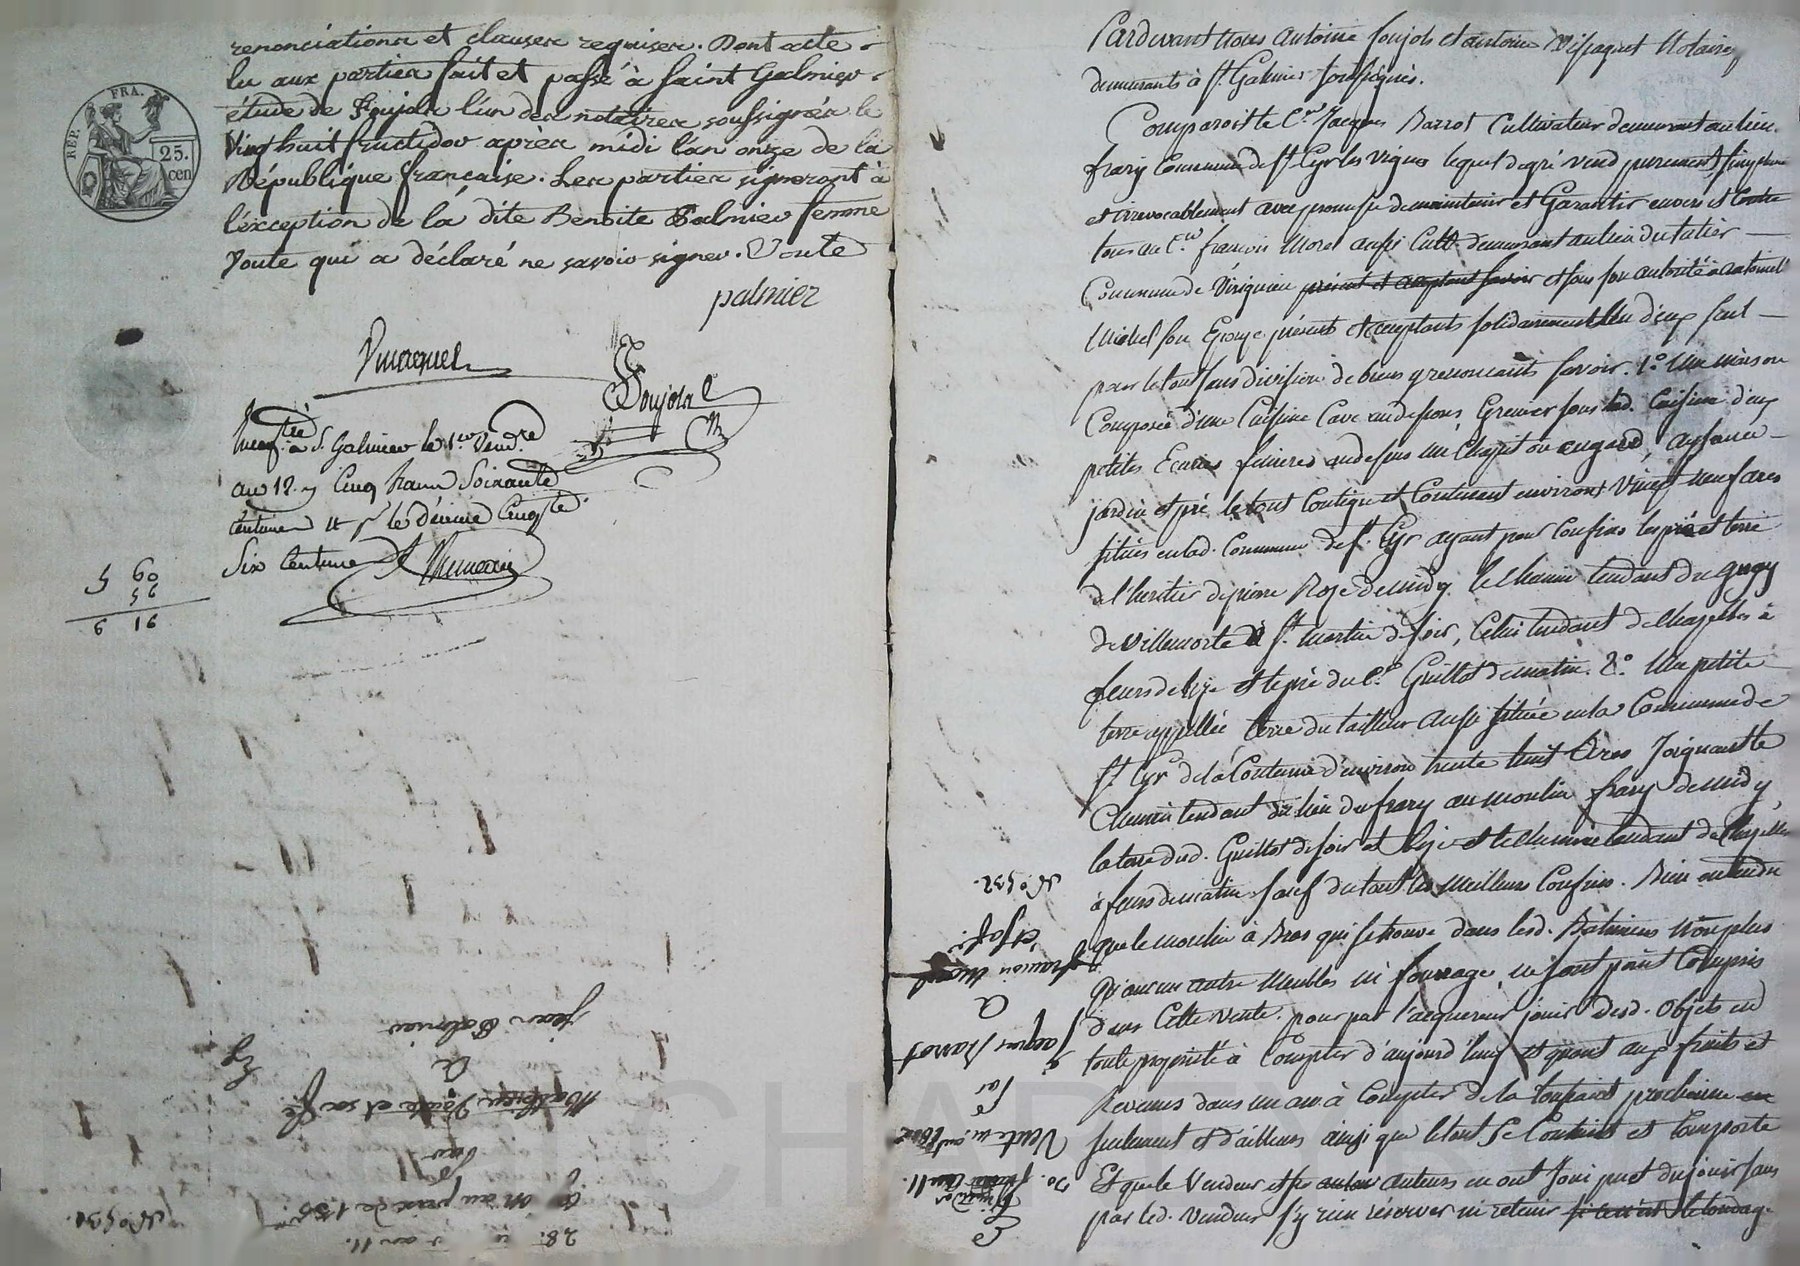 renonciations et clauses requises. Dont acte
lu aux parties fait et passé à Saint Galmier
étude de Foujols l'un des notaires soussignés le
Vingt huit fructidor après midi l'an onze de la
République française. Les parties signeront à
l'exception de la dite Benoite Palmier femme
Voute qui a déclaré ne savoir signer. Voute
palmier
Foujols
REP. FRA.
25.
cen
Enregtré à St Galmier le 1er Vendre
an 12. Cinq francs Soixante
Centimes et pr le décime Cinqte
Six Centimes
5 60
56
6 16
Jean Palmier
à
Mathieu Voute et sa fe
par
au prix de
28. an 11.
No 531.
Pardevant Nous Antoine foujols et antoine Notaires
demeurants à St Galmier soussignés.
Comparoit le Cen Jacques Barrot Cultivateur demeurant au lieu
frary Commune de St Cyr les Vignes lequel de gré vend purement simplement
et irrevocablement avec promesse de maintenir et Garantir envers et contre
tous au Cen francois Morel aussi Cultr demeurant au lieu du tatier
Commune de Virigneu présent et acceptant savoir et sous son autorité à antoinette
Michel son Epouse présents et acceptants solidairement l'un d'eux seul
pour le tout sans division de biens y renoncants savoir. 1o Une maison
Composée d'une Cuisine Cave au dessous, Grenier sous lad. Cuisine deux
petites Ecuries fenieres au dessus un Chapit ou angard, aysances
jardin et pré le tout Contigu et Contenant environ Vingt neuf ares
situés en lad. Commune de St Cyr ayant pour Confins les pré et terre
de l'heritier de pierre Roze de midy. le Chemin tendant du
de Villemorte à St Martin de soir, Celui tendant de Chazelles à
feurs de bize et le pré du Cen Guillot de matin. 2o Une petite
terre appellée terre du tailleur aussi située en la Commune de
St Cyr de la Contenue d'environ trente huit Ares Joignant le
Chemin tendant du lieu du frary au moulin frary de midy,
la terre dud. Guillot de soir et bize et le Chemin tendant de Chazelles
à feurs de matin sauf du tout les Meilleurs Confins. Bien entendu
que le moulin à Bras qui se trouve dans lesd. Batimens non plus
qu'aucun autre Meubles ni fourrage, ne sont point Compris
dans Cette Vente. pour par l'acquereur jouir desd. Objets en
toute propriété à Compter d'aujourd'huy et quant aux fruits et
Revenus dans un an à Compter de la toussaint prochaine
seulement et d'ailleurs ainsi que le tout se Contient et Comporte
Et que le Vendeur et ses auteurs en ont Joui pu et du jouir sans
par led. Vendeur s'y rien réserver ni retenir
No 532.
francois Morel
à
Jacques Barrot
par
Vente
30. an 11.